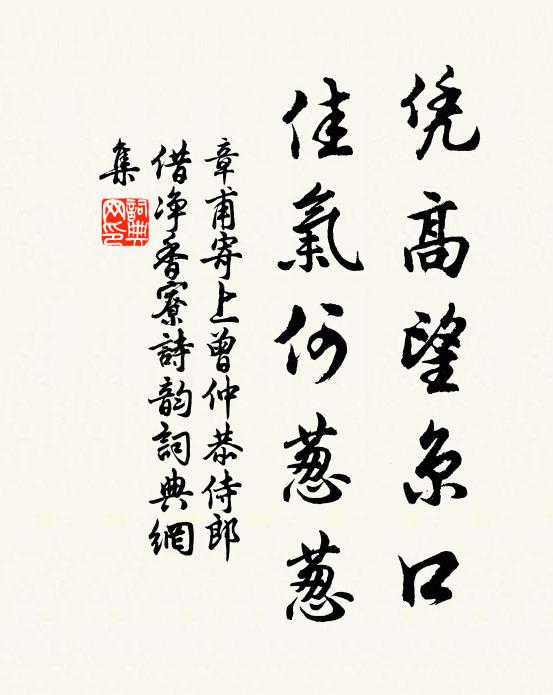 凭高望京口
佳氣何葱葱
章甫寄上曾仲恭侍郎
借净香寮詩韵詞典網
集
詞典
网印